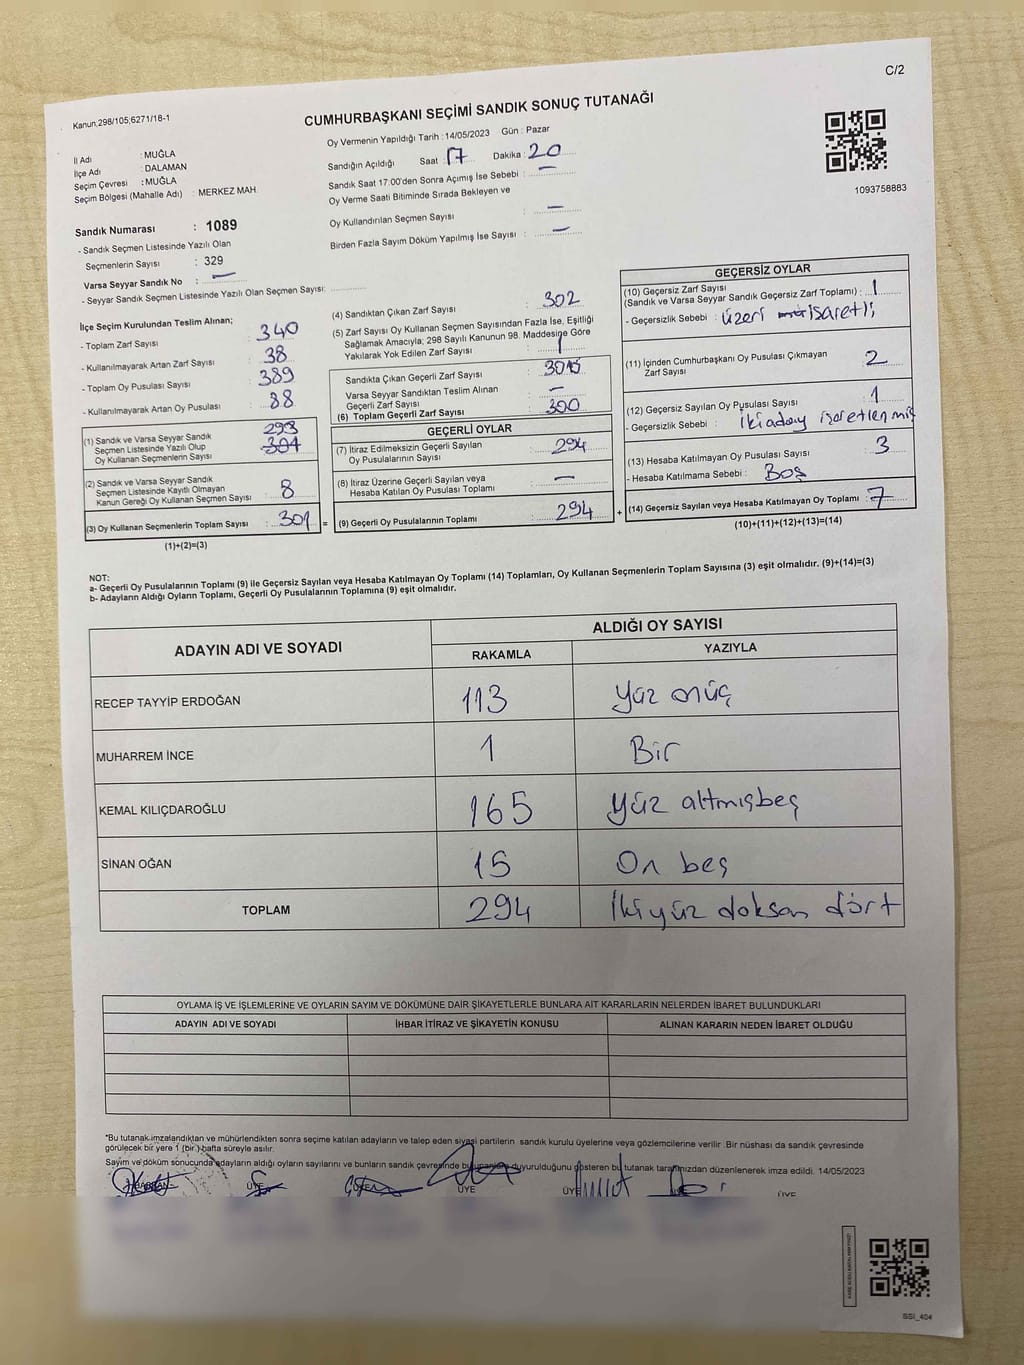 C/2
Kanun,298/105;6271/18-1
CUMHURBAŞKANI SEÇİMİ SANDIK SONUÇ TUTANAĞI
Oy Vermenin Yapıldığı Tarih : 14/05/2023 Gün : Pazar
İl Adı : MUĞLA
İlçe Adı : DALAMAN
Seçim Çevresi : MUĞLA
Seçim Bölgesi (Mahalle Adı) : MERKEZ MAH
Sandığın Açıldığı Saat : 17 Dakika : 20
Sandık Saat 17:00'den Sonra Açımış İse Sebebi : —
Oy Verme Saati Bitiminde Sırada Bekleyen ve
Oy Kullandırılan Seçmen Sayısı : —
Birden Fazla Sayım Döküm Yapılmış İse Sayısı : —
1093758883
Sandık Numarası : 1089
- Sandık Seçmen Listesinde Yazılı Olan
Seçmenlerin Sayısı : 329
Varsa Seyyar Sandık No : —
- Seyyar Sandık Seçmen Listesinde Yazılı Olan Seçmen Sayısı:
İlçe Seçim Kurulundan Teslim Alınan;
- Toplam Zarf Sayısı : 340
- Kullanılmayarak Artan Zarf Sayısı : 38
- Toplam Oy Pusulası Sayısı : 389
- Kullanılmayarak Artan Oy Pusulası : 88
293
(1) Sandık ve Varsa Seyyar Sandık
Seçmen Listesinde Yazılı Olup
Oy Kullanan Seçmenlerin Sayısı
(2) Sandık ve Varsa Seyyar Sandık
Seçmen Listesinde Kayıtlı Olmayan
Kanun Gereği Oy Kullanan Seçmen Sayısı : 8
(3) Oy Kullanan Seçmenlerin Toplam Sayısı : 301 =
(1)+(2)=(3)
(4) Sandıktan Çıkan Zarf Sayısı : 302
(5) Zarf Sayısı Oy Kullanan Seçmen Sayısından Fazla İse, Eşitliği
Sağlamak Amacıyla; 298 Sayılı Kanunun 98. Maddesine Göre
Yakılarak Yok Edilen Zarf Sayısı : 1
Sandıkta Çıkan Geçerli Zarf Sayısı :
Varsa Seyyar Sandıktan Teslim Alınan
Geçerli Zarf Sayısı : —
(6) Toplam Geçerli Zarf Sayısı : 300
GEÇERLİ OYLAR
(7) İtiraz Edilmeksizin Geçerli Sayılan
Oy Pusulalarının Sayısı : 294
(8) İtiraz Üzerine Geçerli Sayılan veya
Hesaba Katılan Oy Pusulası Toplamı : —
(9) Geçerli Oy Pusulalarının Toplamı : 294 +
GEÇERSİZ OYLAR
(10) Geçersiz Zarf Sayısı
(Sandık ve Varsa Seyyar Sandık Geçersiz Zarf Toplamı) : 1
- Geçersizlik Sebebi : üzeri işaretli
(11) İçinden Cumhurbaşkanı Oy Pusulası Çıkmayan
Zarf Sayısı : 2
(12) Geçersiz Sayılan Oy Pusulası Sayısı : 1
- Geçersizlik Sebebi : İki aday işaretlenmiş
(13) Hesaba Katılmayan Oy Pusulası Sayısı : 3
- Hesaba Katılmama Sebebi : Boş
(14) Geçersiz Sayılan veya Hesaba Katılmayan Oy Toplamı : 7
(10)+(11)+(12)+(13)=(14)
NOT:
a- Geçerli Oy Pusulalarının Toplamı (9) ile Geçersiz Sayılan veya Hesaba Katılmayan Oy Toplamı (14) Toplamları, Oy Kullanan Seçmenlerin Toplam Sayısına (3) eşit olmalıdır. (9)+(14)=(3)
b- Adayların Aldığı Oyların Toplamı, Geçerli Oy Pusulalarının Toplamına (9) eşit olmalıdır.
ADAYIN ADI VE SOYADI ALDIĞI OY SAYISI
RAKAMLA YAZIYLA
RECEP TAYYİP ERDOĞAN 113 Yüz onüç
MUHARREM İNCE 1 Bir
KEMAL KILIÇDAROĞLU 165 Yüz altmışbeş
SİNAN OĞAN 15 On beş
TOPLAM 294 İkiyüz doksan dört
OYLAMA İŞ VE İŞLEMLERİNE VE OYLARIN SAYIM VE DÖKÜMÜNE DAİR ŞİKAYETLERLE BUNLARA AİT KARARLARIN NELERDEN İBARET BULUNDUKLARI
ADAYIN ADI VE SOYADI İHBAR İTİRAZ VE ŞİKAYETİN KONUSU ALINAN KARARIN NEDEN İBARET OLDUĞU
*Bu tutanak imzalandıktan ve mühürlendikten sonra seçime katılan adayların ve talep eden siyasi partilerin sandık kurulu üyelerine veya gözlemcilerine verilir. Bir nüshası da sandık çevresinde
görülecek bir yere 1 (bir) hafta süreyle asılır.
Sayım ve döküm sonucunda adayların aldığı oyların sayılarını ve bunların sandık çevresinde duyurulduğunu gösteren bu tutanak tarafımızdan düzenlenerek imza edildi. 14/05/2023
BAŞKAN ÜYE ÜYE ÜYE ÜYE ÜYE
SSI_404